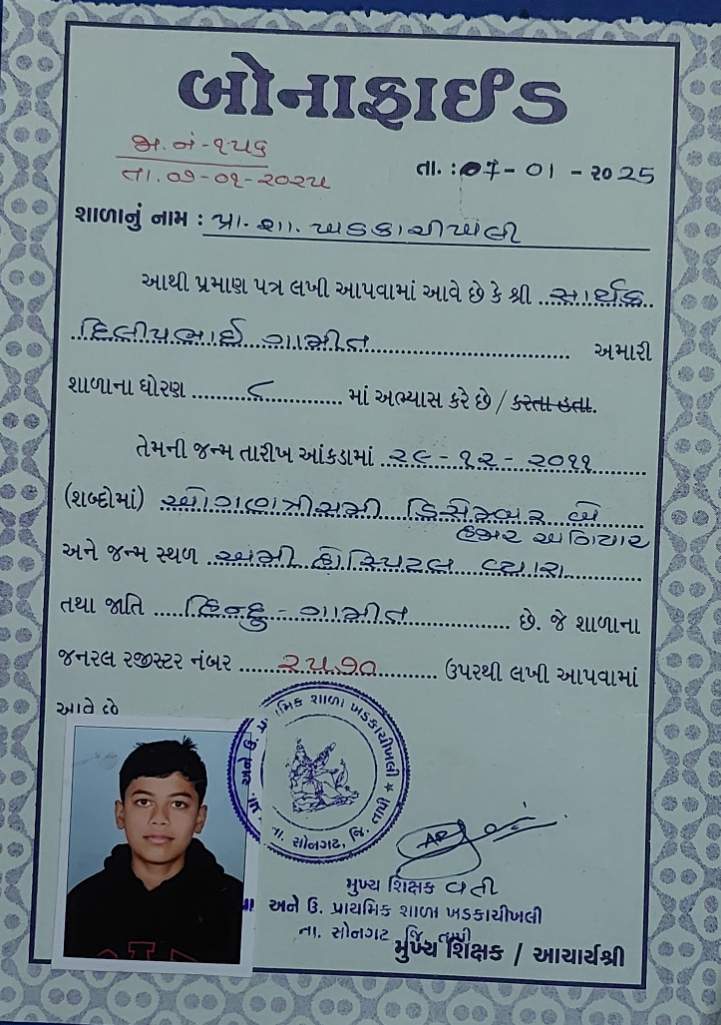 બોનાફાઈડ
જા.નં-૧૫૬
તા.૦૭-૦૧-૨૦૨૫
તા. : 07-01-૨૦25
શાળાનું નામ : પ્રા. શા. ખડકાચીખલી
આથી પ્રમાણ પત્ર લખી આપવામાં આવે છે કે શ્રી સાર્થક
દિલીપભાઈ ગામીત અમારી
શાળાના ધોરણ ૮ માં અભ્યાસ કરે છે / કરતા હતા.
તેમની જન્મ તારીખ આંકડામાં ૨૯-૧૨-૨૦૧૧
(શબ્દોમાં) ઓગણત્રીસમી ડિસેમ્બર બે
હજાર અગિયાર
અને જન્મ સ્થળ અમી હોસ્પિટલ વ્યારા
તથા જાતિ હિન્દુ - ગામીત છે. જે શાળાના
જનરલ રજીસ્ટર નંબર ૨૫૭૦ ઉપરથી લખી આપવામાં
આવે છે
અને ઉ. પ્રાથમિક શાળા ખડકાચીખલી
તા. સોનગઢ, જિ. તાપી
મુખ્ય શિક્ષક વતી
અને ઉ. પ્રાથમિક શાળા ખડકાચીખલી
તા. સોનગઢ જિ. તાપી
મુખ્ય શિક્ષક / આચાર્યશ્રી